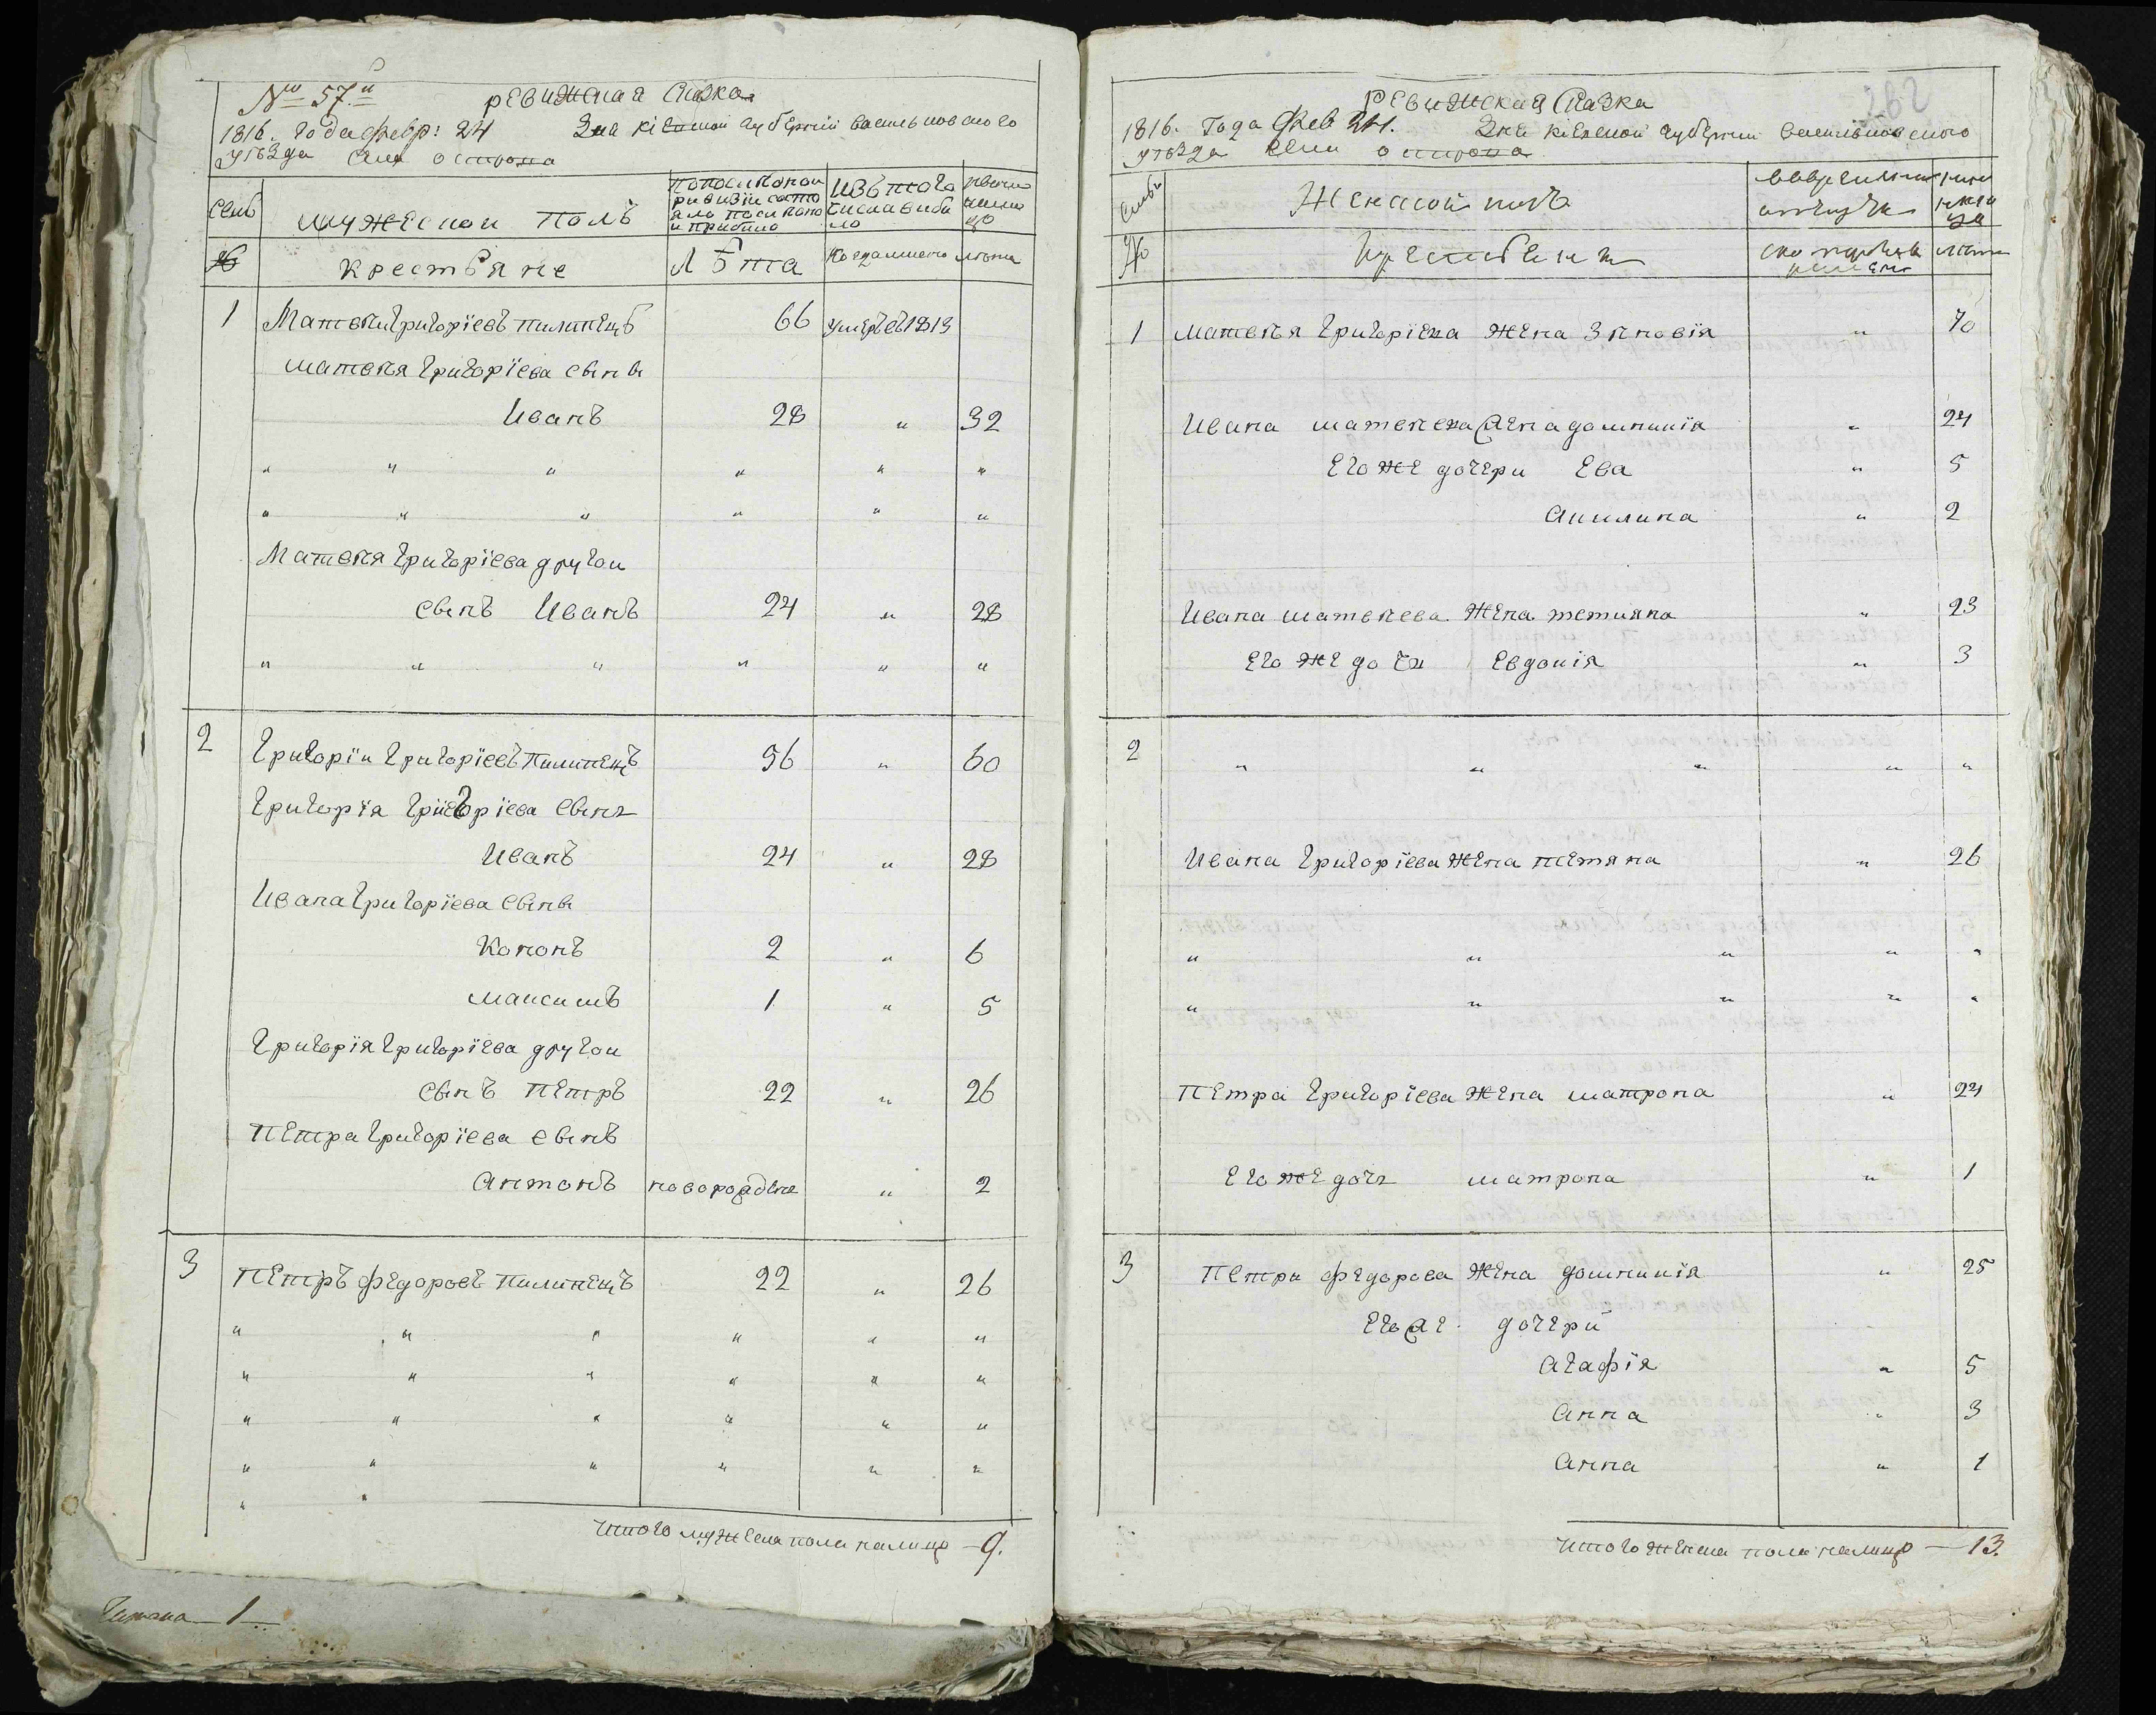 № 57.й
ревижская сказка
1816. года февр: 24 Дня кіевской губерніи васильковского
уѣзда села острова
семьи
мужеской полъ
попоследней ревизіи состояло и после того прибыло
изътого числа выбыло
ныне налицо
№
крестьяне
Лѣта
Когда именно
лѣта
1 Матвѣй Григоріевъ пилипецъ 66 умеръ въ 1813
Матвѣя Григоріева сыны
Иванъ 28 " 32
" " " " " "
" " " " " "
Матвѣя Григоріева другои
сынъ Иванъ 24 " 28
" " " " " "
2 Григоріи Григоріевъ Пилипецъ 56 " 60
Григорія Григоріева сынъ
Иванъ 24 " 28
Ивана Григоріева сыны
Кононъ 2 " 6
максимъ 1 " 5
Григорія Григоріева другои
сынъ Петръ 22 " 26
Петра Григоріева сынъ
антонъ новорожденъ " 2
3 Петръ федоровъ Пилипецъ 22 " 26
" " " " " "
" " " " " "
" " " " " "
" " " " " "
" "
Итого мужеска пола налицо — 9.
1
262
Ревижская Сказка
1816. Года Фев 24. Дня кіевской губерніи васильковского
уѣзда села острова
семьи
Женской полъ
вовременной отлучке
ныне налицо
№
крестьянки
лѣта
1 матвѣя Григоріева жена Зѣновія " 70
Ивана матвѣева жена домникія " 24
Егоже дочери Ева " 5
акилина " 2
Ивана матвѣева жена тетияна " 23
Егоже дочь Евдокія " 3
2 " " " " "
Ивана Григоріева жена тетяна " 26
" " " " "
" " " " "
Петра Григоріева жена матрона " 24
Егоже дочь матрона " 1
3 Петра федорова жена домникія " 25
Егоже дочери
агафія " 5
анна " 3
анна " 1
Итого женска пола налицо — 13.